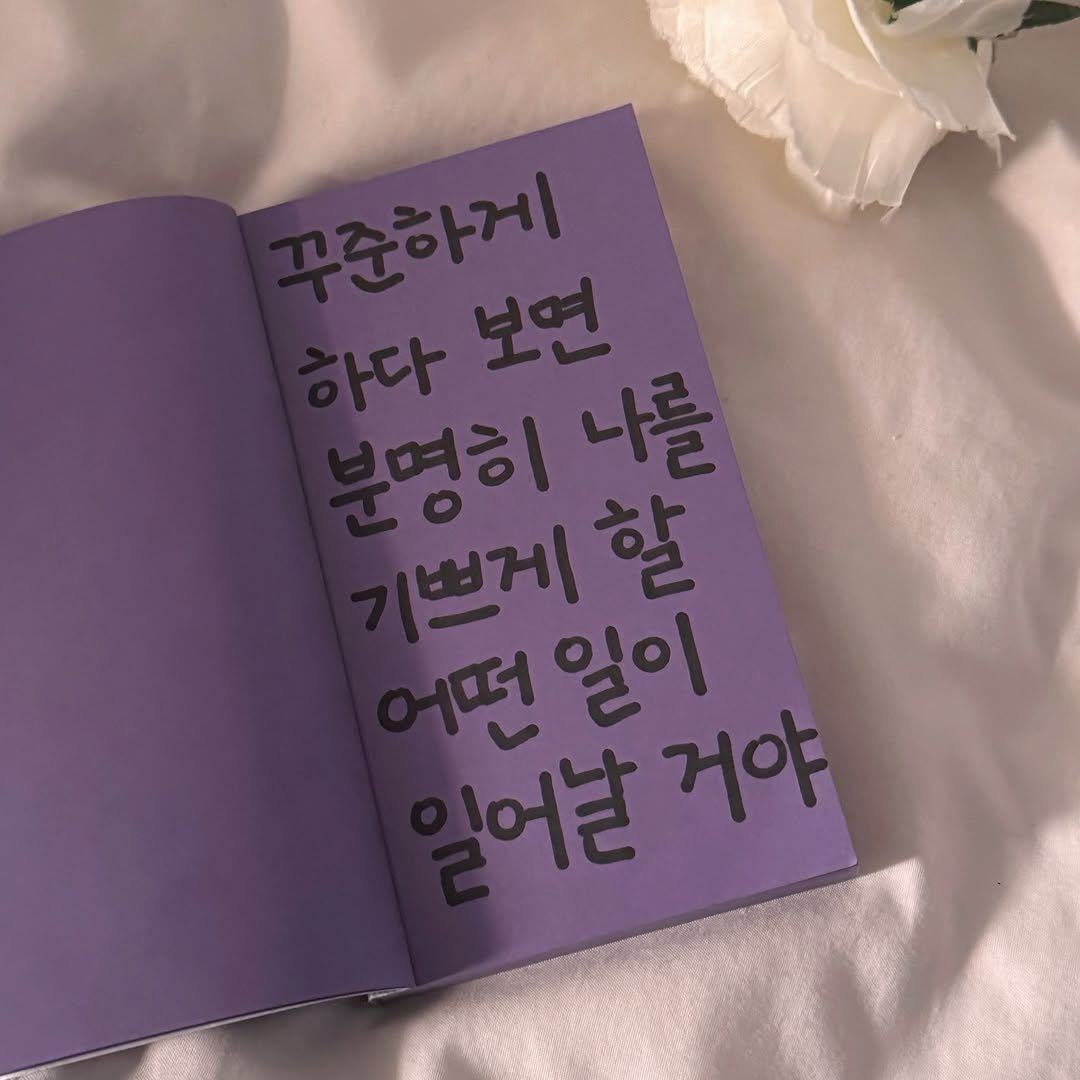 꾸준하게
하다 보면
분명히 나를
기쁘게 할
어떤 일이
일어날 거야